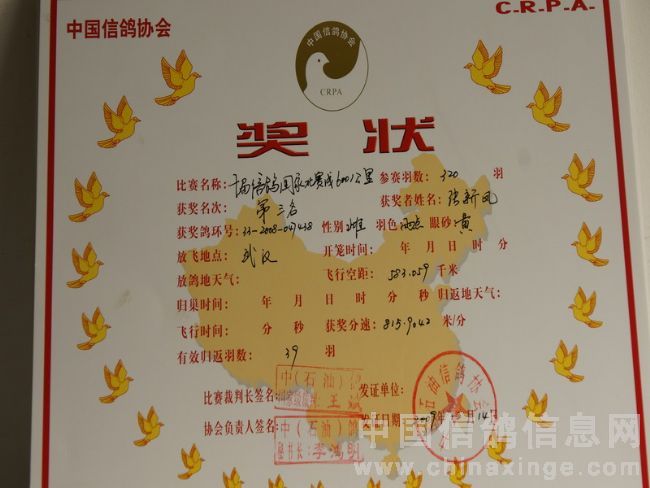 中国信鸽协会
C-R-P-A-
中国信鸽协会
CRPA
奖 状
比赛名称: 信鸽国家比赛600公里 参赛羽数: 320 羽
获奖名次: 第三名 获奖者姓名: 张新风
获奖鸽环号: 33-2008-047438 性别 雄 羽色 雨点 眼砂 黄
放飞地点: 武汉 开笼时间: 年 月 日 时 分
放鸽地天气: 飞行空距: 583.059 千米
归巢时间: 年 月 日 时 分 秒 归返地天气:
飞行时间: 分 秒 获奖分速: 815.9042 米/分
有效归返羽数: 39 羽
比赛裁判长签名: 中(石油)鸽 王 发证单位:
协会负责人签名: 中(石油)鸽 李鸿明 发证日期: 2009年 月14日
石油信鸽协会
中国信鸽信息网
www.chinaxinge.com